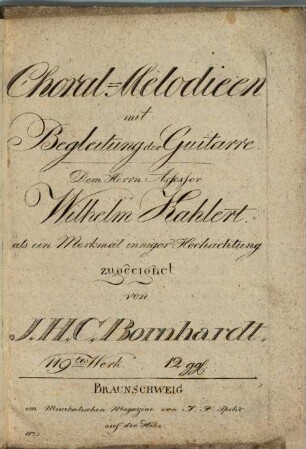 Choral=Melodieen
mit
Begleitung der Guitarre.
Dem Herrn Assessor
Wilhelm Kahlert.
als ein Merkmal inniger Hochachtung
zugeeignet
von
J.H.C. Bornhardt.
119tes Werk 12 ggl.
BRAUNSCHWEIG
im Musikalischen Magazine von J. P. Spehr
auf der Höhe